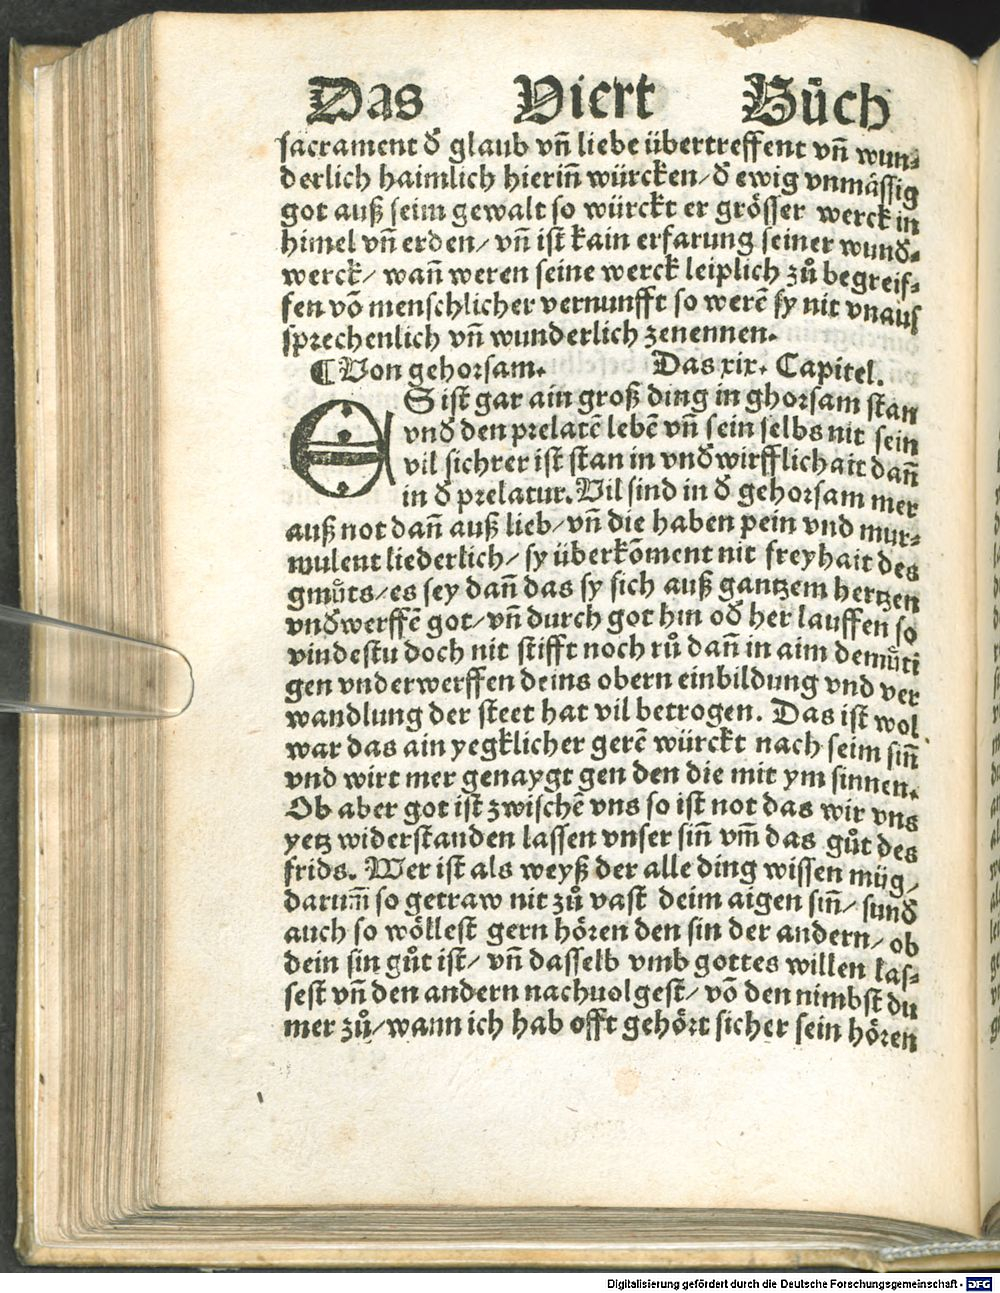 Das Viert Bůch
sacrament đ glaub vñ liebe übertreffent vñ wun⸗
derlich haimlich hieriñ würcken/ đ ewig vnmässig
got auß seim gewalt so würckt er grösser werck in
himel vñ erden/ vñ ist kain erfarung seiner wunđ⸗
werck/ wañ weren seine werck leiplich zů begreif⸗
fen võ menschlicher vernunfft so werẽ sy nit vnaus
sprechenlich vñ wunderlich zenennen.
¶ Von gehorsam. Das xix. Capitel.
ES ist gar ain groß ding in ghorsam stan
vnđ den prelatẽ lebẽ vñ sein selbs nit sein
vil sichrer ist stan in vnđwirfflichait dañ
in đ prelatur. Vil sind in đ gehorsam mer
auß not dañ auß lieb/ vñ die haben pein vnd mur⸗
mulent liederlich/ sy überkõment nit freyhait des
gmůts/ es sey dañ das sy sich auß gantzem hertzen
vnđwerffẽ got/ vñ durch got hin ođ her lauffen so
vindestu doch nit stifft noch rů dañ in aim demůti
gen vnderwerffen deins obern einbildung vnd ver
wandlung der steet hat vil betrogen. Das ist wol
war das ain yegklicher gerẽ würckt nach seim siñ
vnd wirt mer genaygt gen den die mit ym sinnen.
Ob aber got ist zwischẽ vns so ist not das wir vns
yetz widerstanden lassen vnser siñ vm̃ das gůt des
frids. Wer ist als weyß der alle ding wissen müg/
darum̃ so getraw nit zů vast deim aigen siñ/ sunđ
auch so wöllest gern hören den sin der andern/ ob
dein sin gůt ist/ vñ dasselb vmb gottes willen las⸗
sest vñ den andern nachuolgest/ võ den nimbst du
mer zů/ wann ich hab offt gehört sicher sein hören
Digitalisierung gefördert durch die Deutsche Forschungsgemeinschaft - DFG